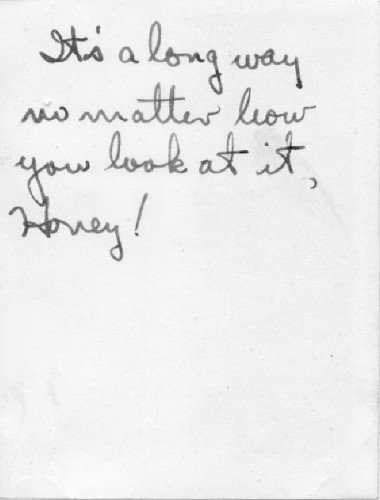 It's a long way
no matter how
you look at it,
Honey!